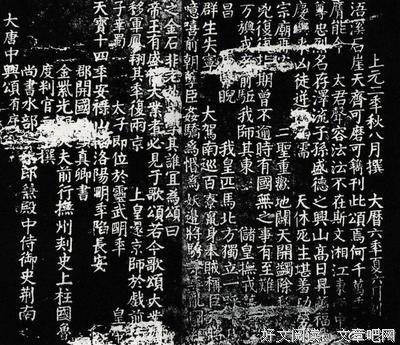 大唐中興頌有序
尚書水部郎殿中侍御史荊南
度判官
金紫光大夫前行撫州刺史上柱國魯
郡開國真卿書
天寶十四年安祿山陷洛陽明年陷長安
子幸蜀 太子即位於靈武明年 皇
移軍鳳翔其年復兩京 上皇還京師於戲前
帝王有盛大業者必見于歌頌若今歌頌大業
之金石非老其誰宜為頌曰
噫嘻前朝孽臣姦驕為惛為妖邊將騁亂
群生失寧 大駕南巡百寮竄身奉賊稱臣
昌睨 我皇匹馬北方獨立一呼
萬旟戎卒前驅我師其東 儲皇撫戎
兇復復指期曾不踰時有國無之事有至難
宗廟再安 二聖重歡地闢天開蠲除
慶大來兇徒逆儔 天休死生堪羞功
尊忠烈名存澤流子孫盛德之興山高日昇萬福
膺能令 大君聲容沄沄不在斯文湘江東中
浯溪石崖天齊可磨可鐫刊此頌焉何千萬
上元二年秋八月撰 大曆六年夏六
好文阅读 文章吧网